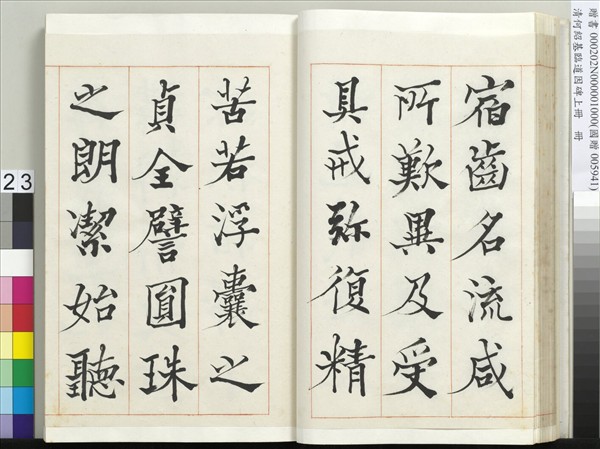 宿齒名流咸
所歎異及受
具戒弥復精
苦若浮囊之
貞全譬圓珠
之朗潔始聽
贈書 000202N000001000(國贈 005941)
清何紹基臨道因碑上冊 冊
23